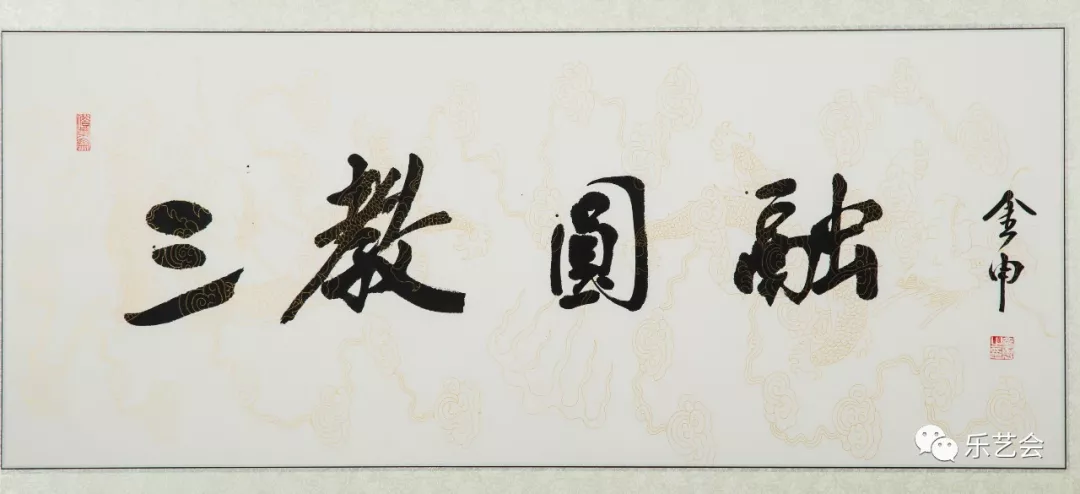 三教圓融
金申
乐艺会